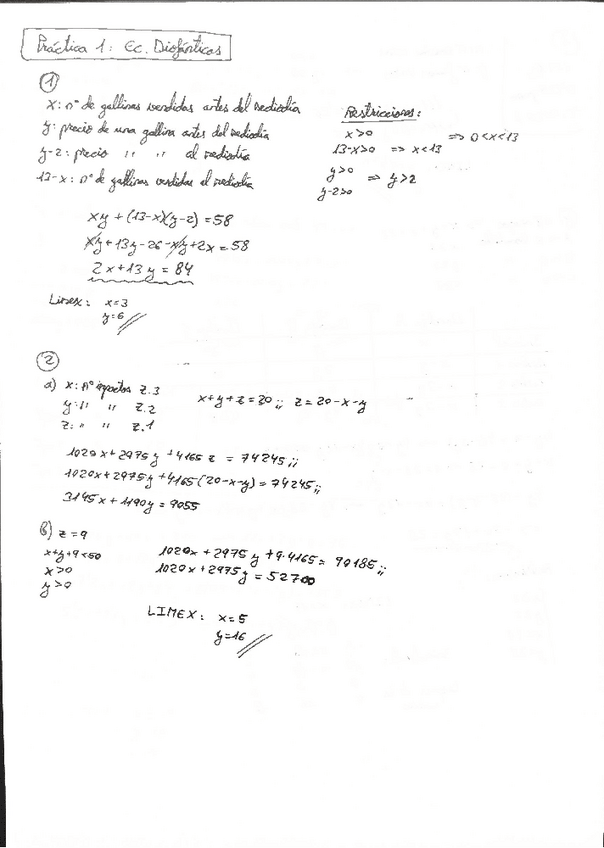 Práctica 1: Ec. Diofánticas
①
x: nº de gallinas vendidas antes del mediodía
y: precio de una gallina antes del mediodía
y-2: precio " " al mediodía
13-x: nº de gallinas vendidas al mediodía
Restricciones:
x>0
13-x>0 => x<13
=> 0<x<13
y>0
y-2>0
=> y>2
xy + (13-x)(y-2) = 58
xy + 13y - 26 - xy + 2x = 58
2x + 13y = 84
Limex: x=3
y=6
②
a) x: nº impactos Z.3
y: " " Z.2
z: " " Z.1
x+y+z=20 ;; z=20-x-y
1020x + 2975y + 4165z = 74245 ;;
1020x + 2975y + 4165(20-x-y) = 74245 ;;
3145x + 1190y = 9055
b) z=9
x+y+9<50
x>0
y>0
1020x + 2975y + 9·4165 = 90185 ;;
1020x + 2975y = 52700
LIMEX: x=5
y=16